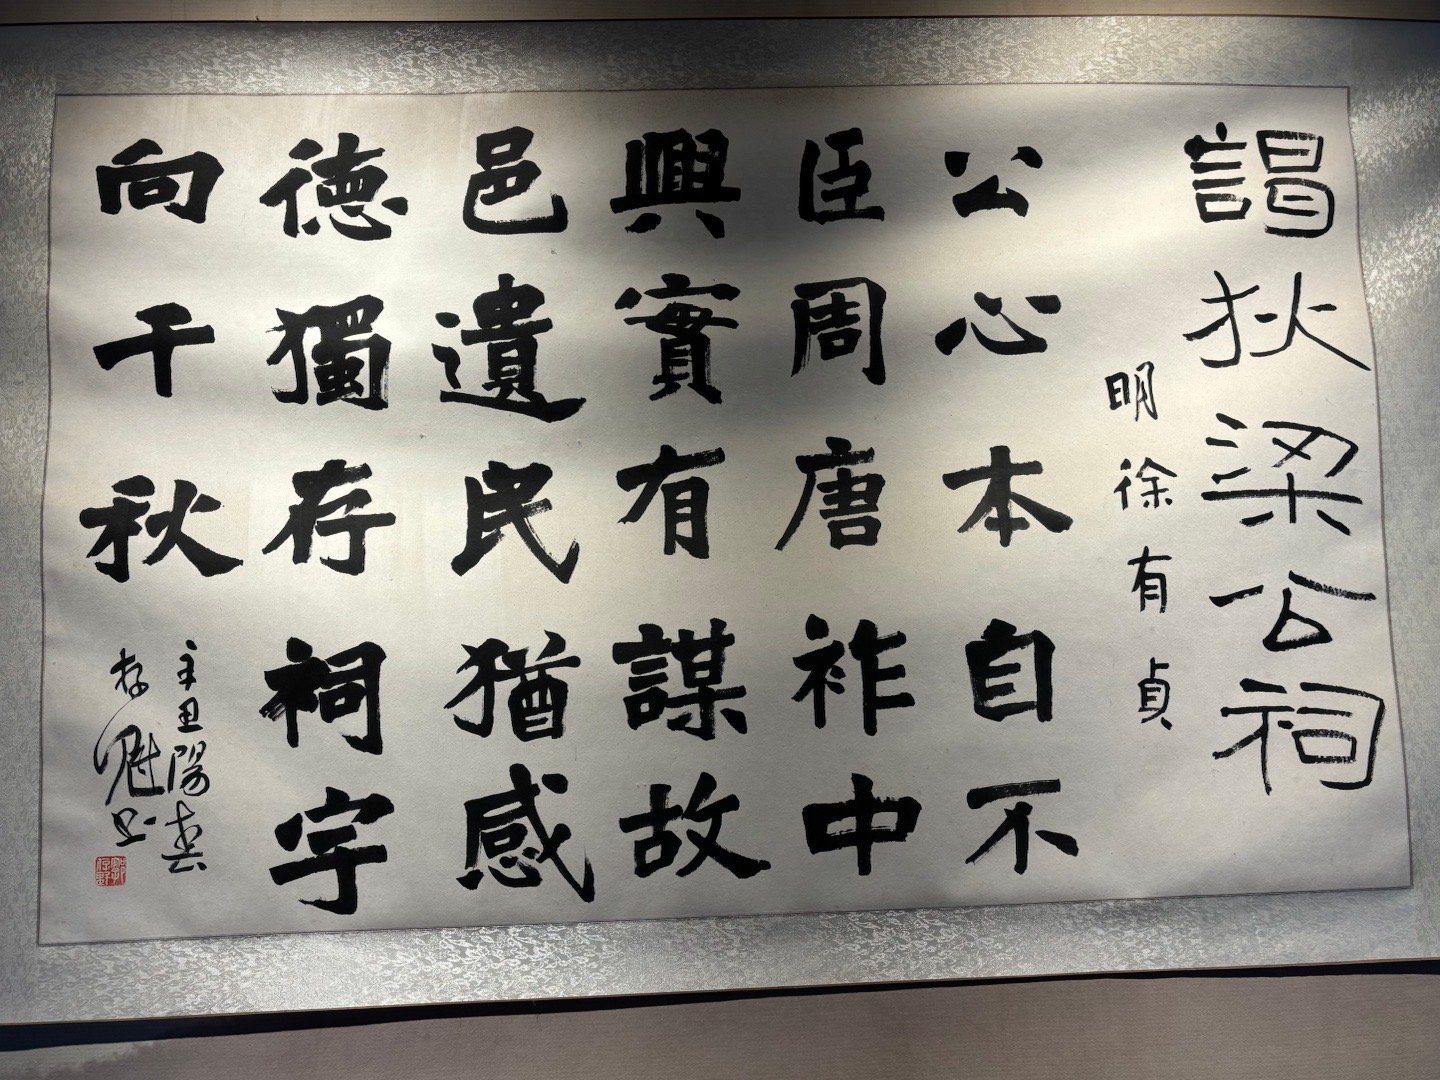 謁狄梁公祠
明徐有貞
公心本自不
臣周唐祚中
興實有謀故
邑遺民猶感
德獨存祠宇
向千秋
辛丑陽春
存書